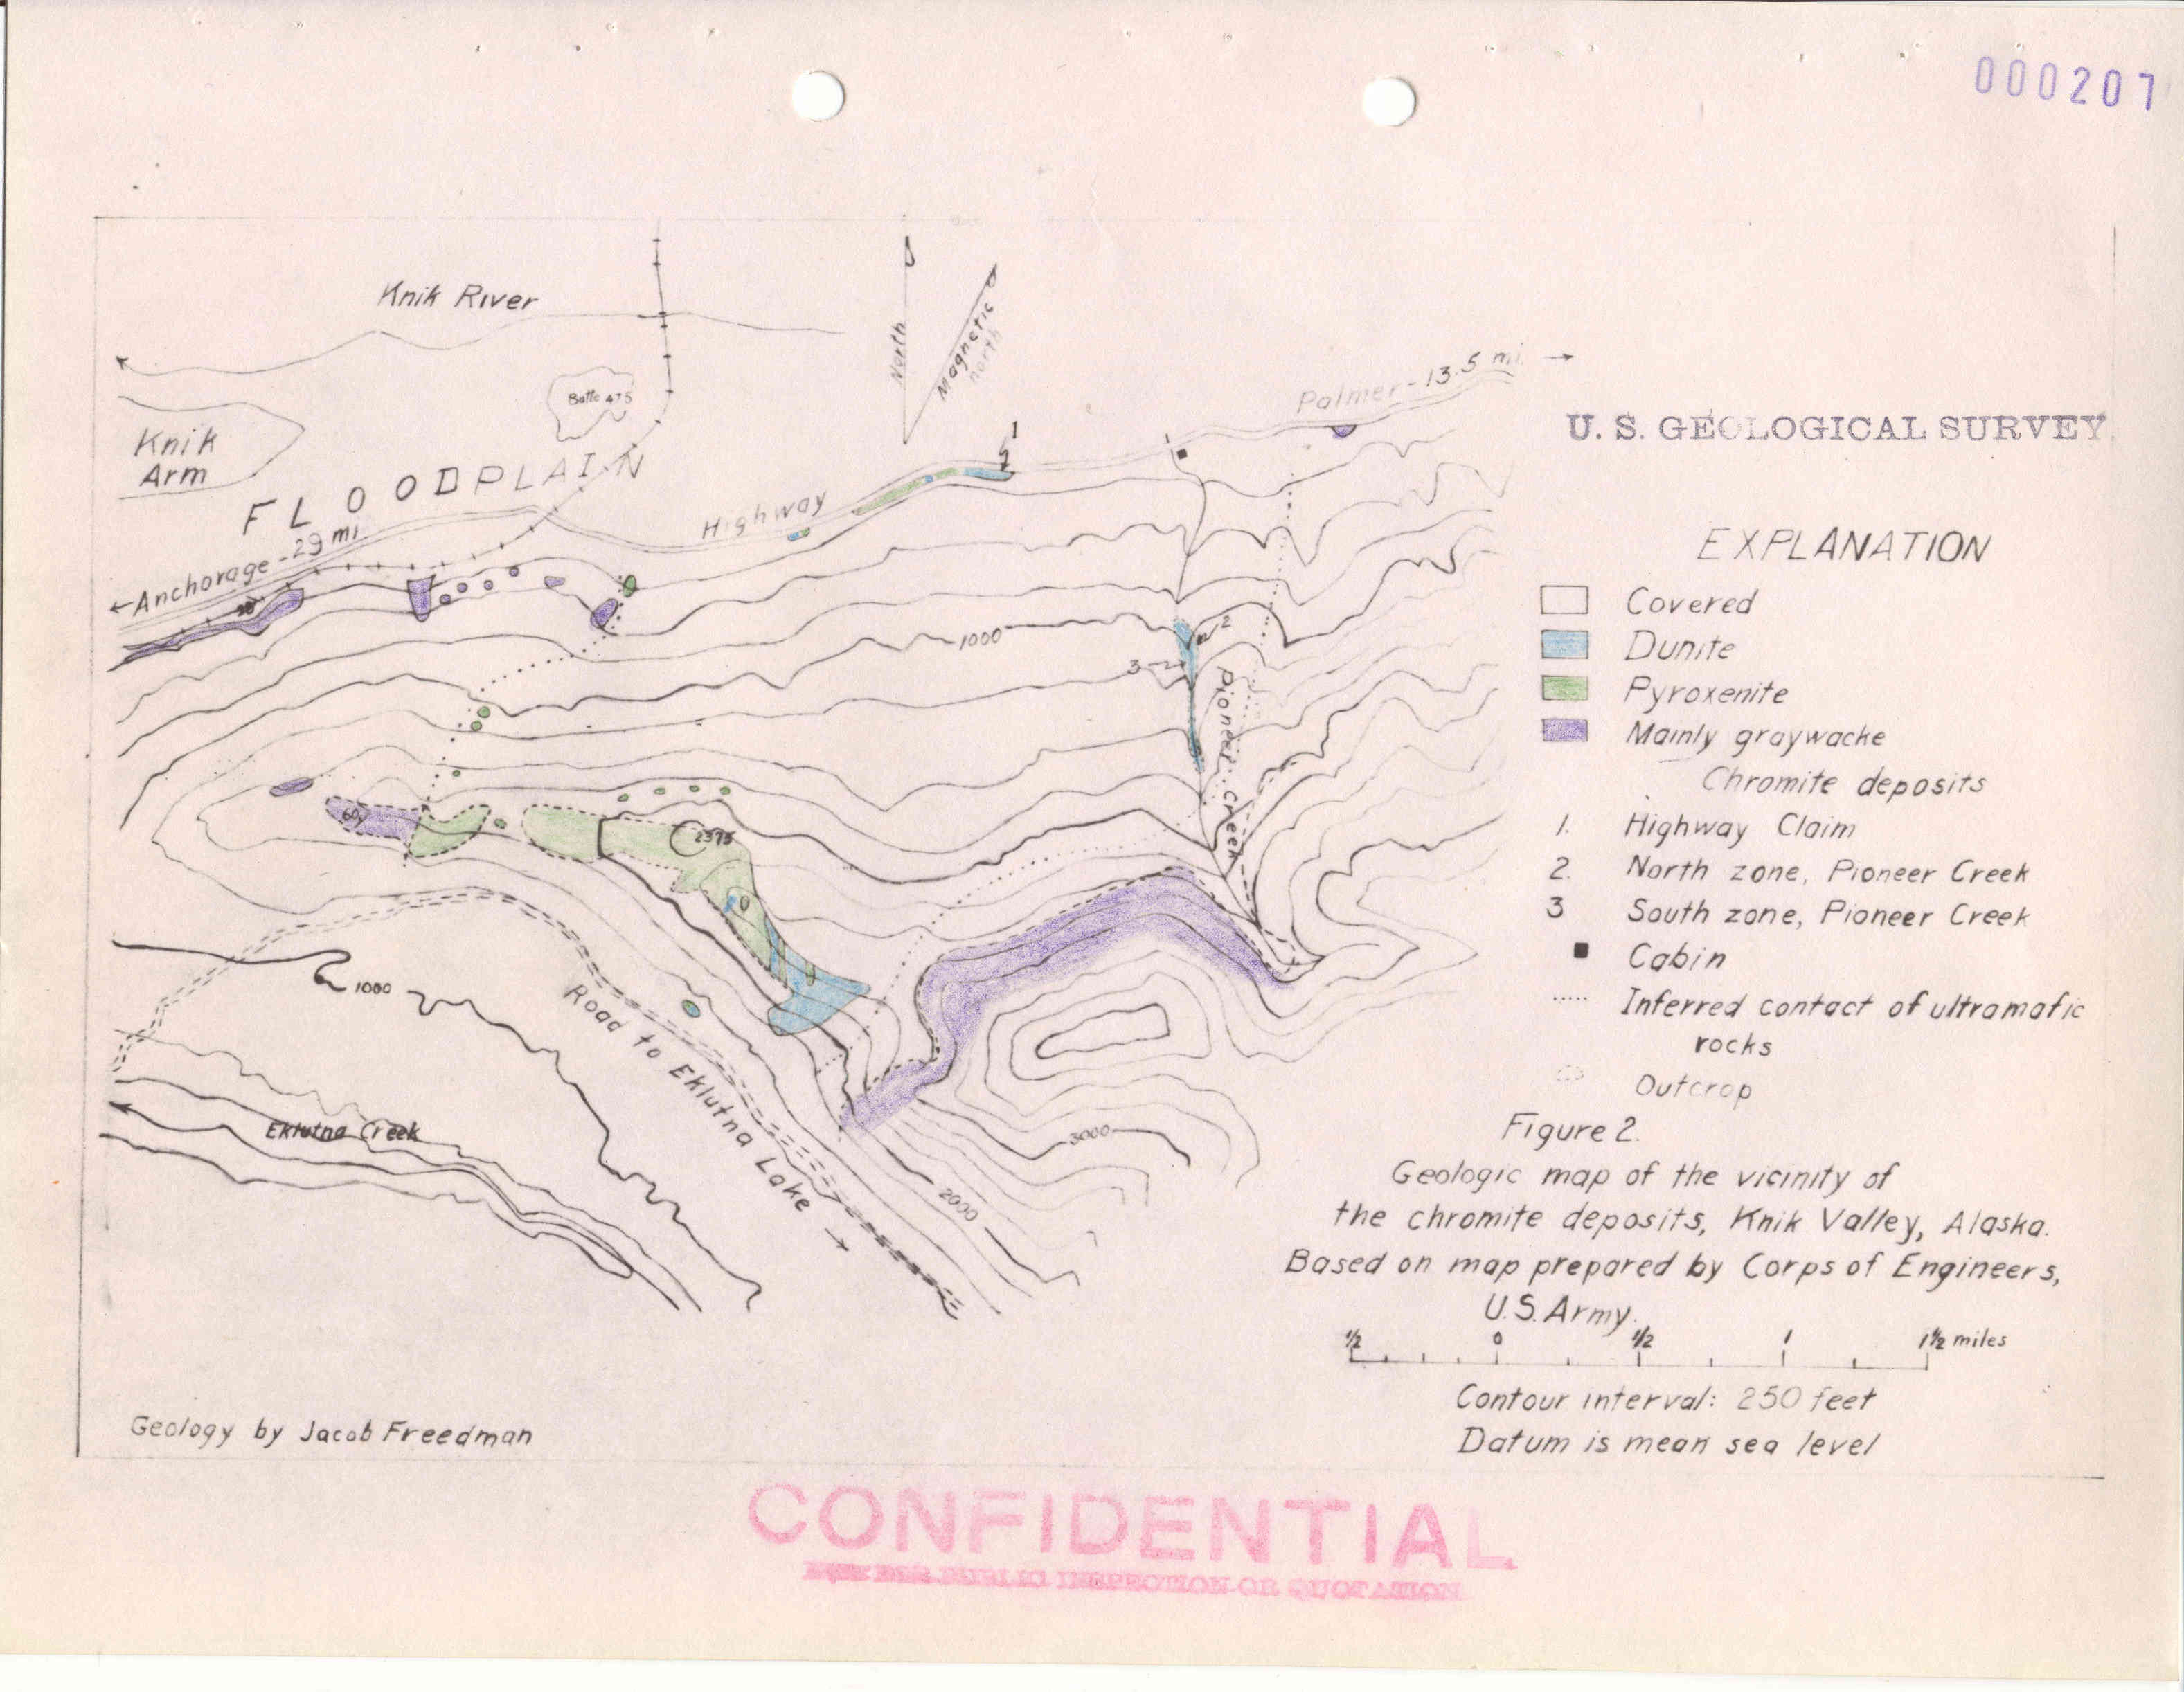 000207
Knik River
North
Magnetic
north
Butte 475
Palmer - 13.5 mi. →
Knik
Arm
U. S. GEOLOGICAL SURVEY.
FLOODPLAIN
1
Highway
←Anchorage - 29 mi
EXPLANATION
Covered
Dunite
Pyroxenite
Mainly graywacke
Chromite deposits
1. Highway Claim
2. North zone, Pioneer Creek
3 South zone, Pioneer Creek
Cabin
Inferred contact of ultramafic
rocks
Outcrop
1000
2
3
Pioneer Creek
60
2375
1000
Road to Eklutna Lake →
Eklutna Creek
3000
2000
Figure 2.
Geologic map of the vicinity of
the chromite deposits, Knik Valley, Alaska.
Based on map prepared by Corps of Engineers,
U.S. Army.
1/2 0 1/2 1 1 1/2 miles
Contour interval: 250 feet
Datum is mean sea level
Geology by Jacob Freedman
CONFIDENTIAL
PUBLIC INSPECTION OR QUOTATION